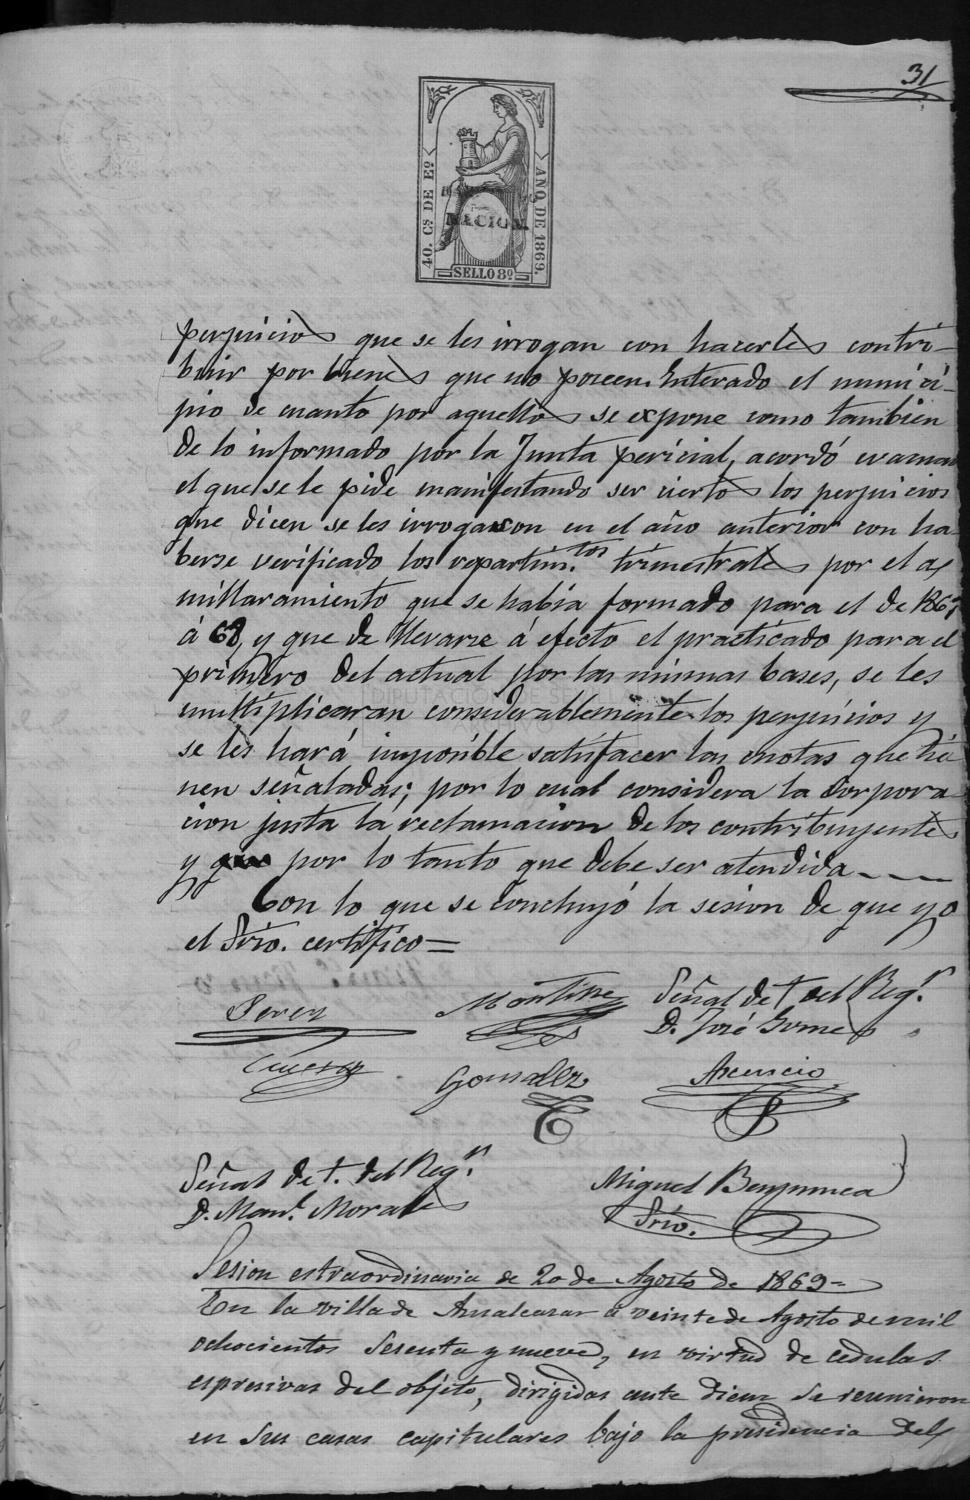 31
40. Cs DE Eo
AÑO DE 1869.
NACION
SELLO 8o
perjuicios que se les irrogan con hacerles contri-
buir por bienes que no poseen. Enterado el munici-
pio de cuanto por aquellos se expone como tambien
de lo informado por la Junta pericial, acordó evacuar
el que se le pide manifestando ser ciertos los perjuicios
que dicen se les irrogaron en el año anterior con ha-
berse verificado los repartim.tos trimestrales por el a-
millaramiento que se habia formado para el de 1867
á 68, y que de llevarse á efecto el practicado para el
primero del actual por las mismas bases, se les
multiplicaran considerablemente los perjuicios y
se les hará imposible satisfacer las cuotas que tie-
nen señaladas; por lo cual considera la Corpora-
cion justa la reclamacion de los contribuyentes
y que por lo tanto que debe ser atendida
Con lo que se concluyó la sesion de que yo
el Srio. certifico=
Perez Martinez Señal de † del Reg.r
D. José Gomez
Cuesta Gonzalez Ascencio
Señal de †. del Reg.r
D. Man.l Morales
Miguel Benjumea
Srio.
Sesion estraordinaria de 20 de Agosto de 1869=
En la villa de Aznalcazar á veinte de Agosto de mil
ochocientos sesenta y nueve, en virtud de cedulas
espresivas del objeto, dirigidas ante diem se reunieron
en sus casas capitulares bajo la presidencia del
DIPUTACIÓN DE SEVILLA